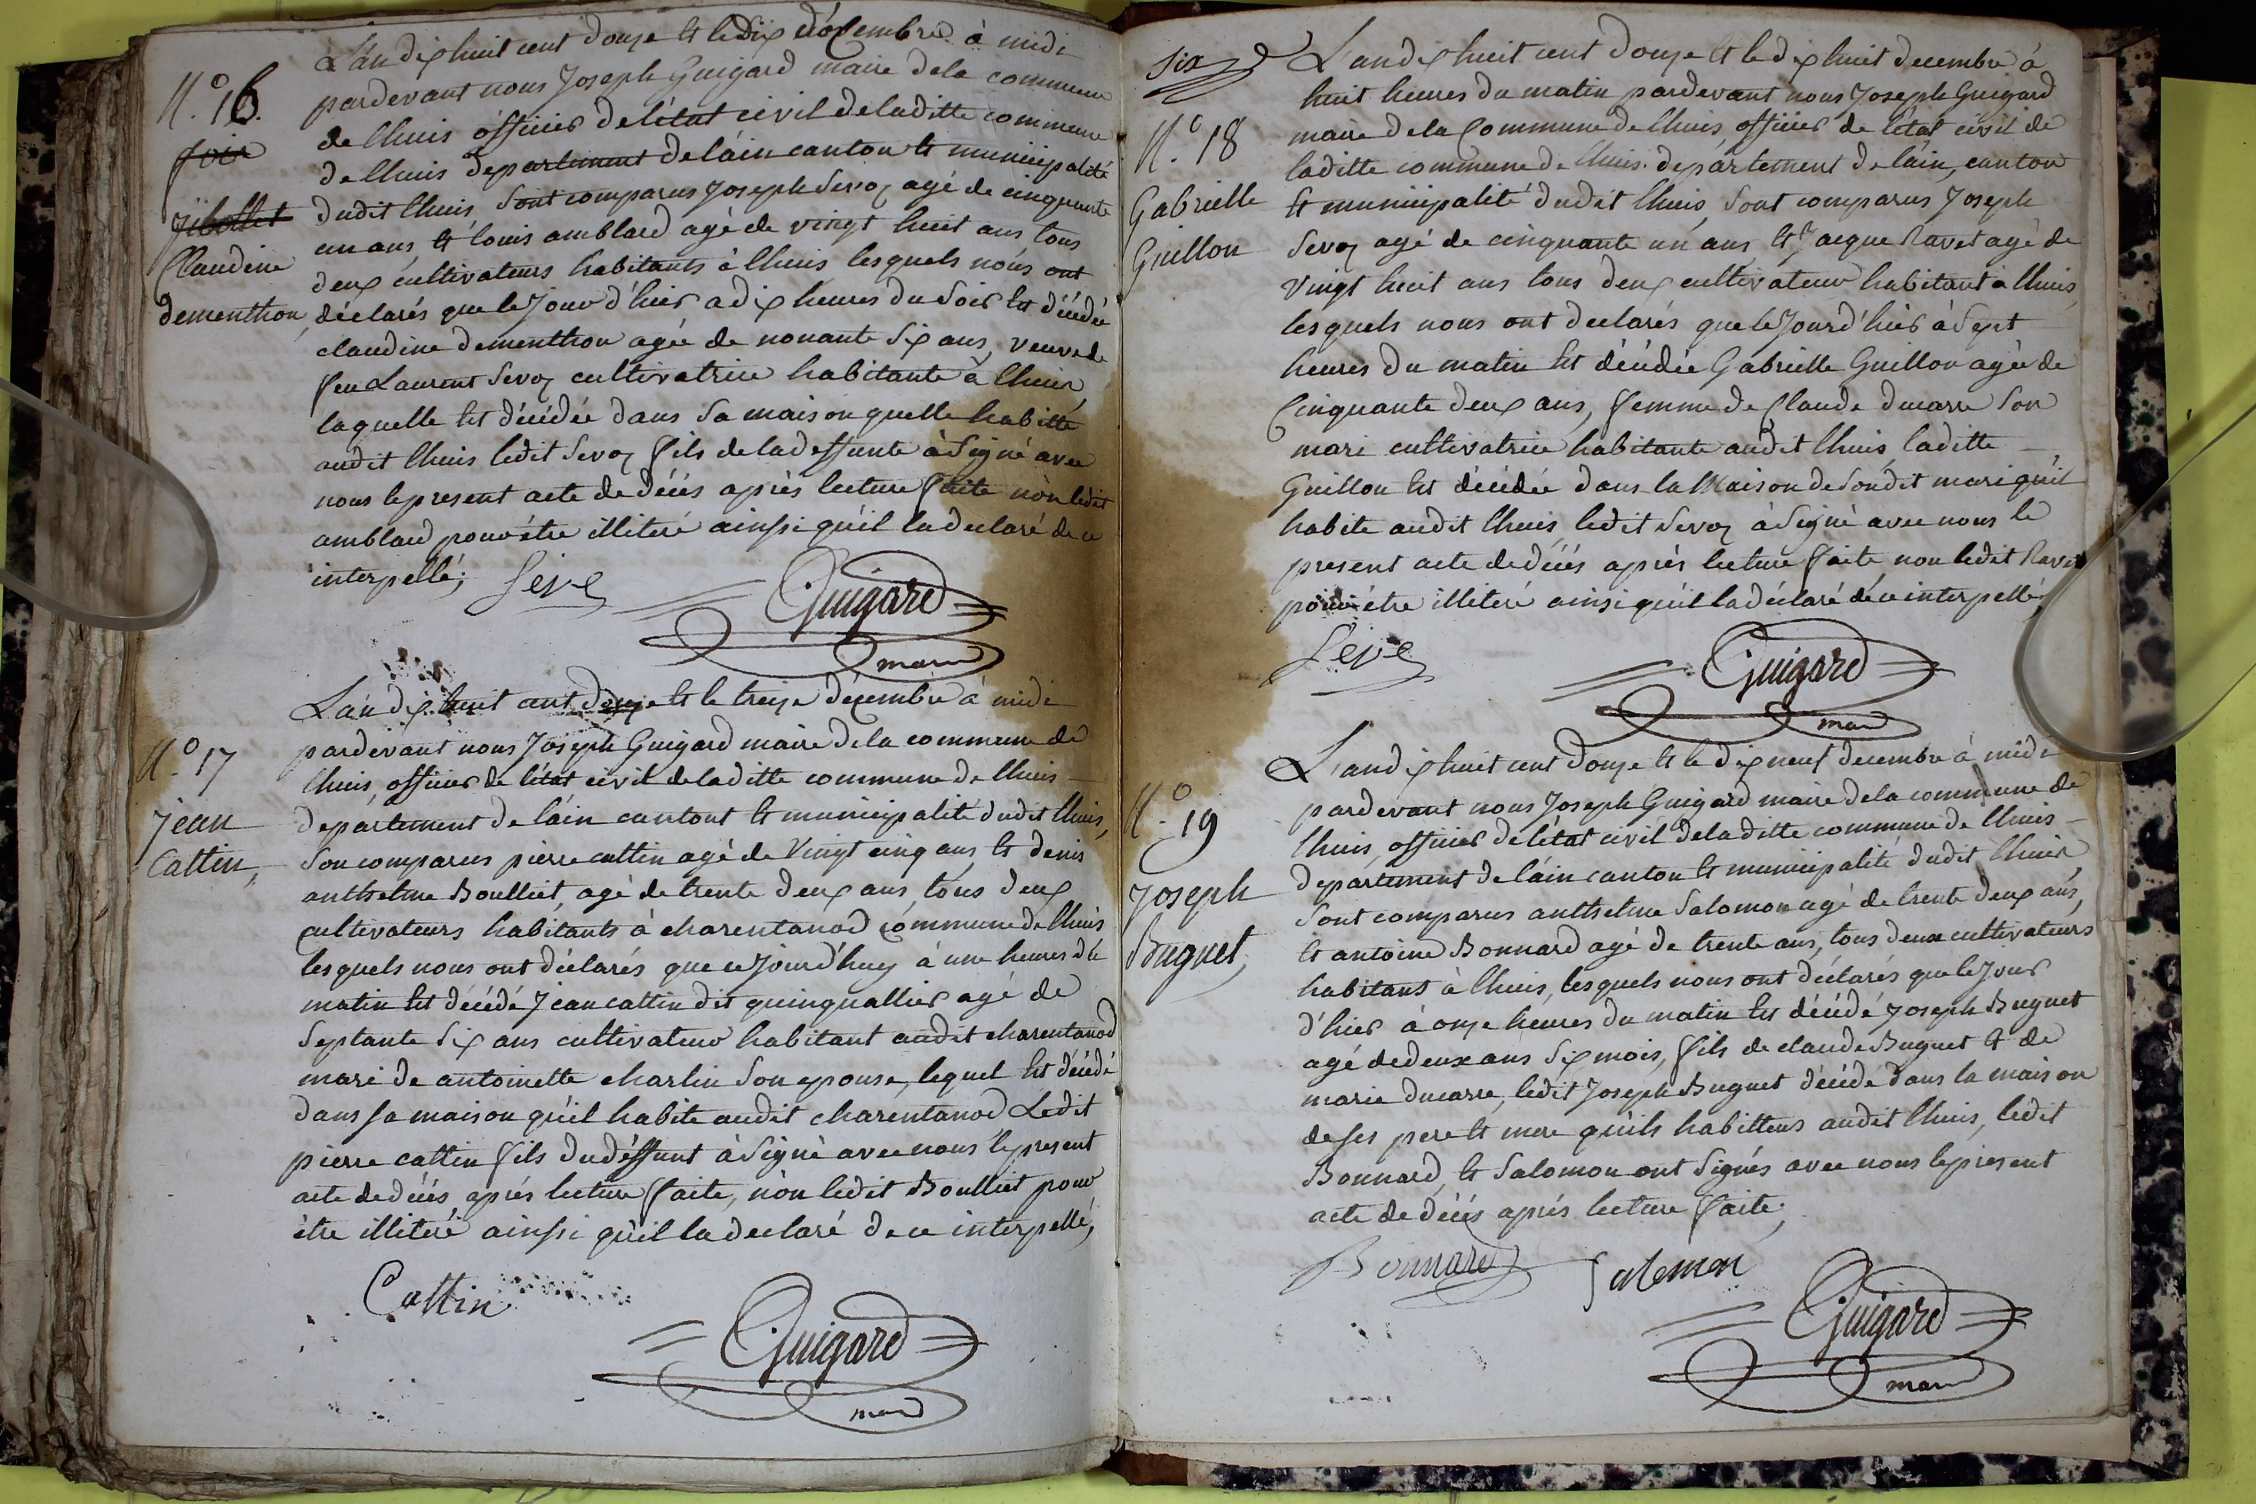 N.° 16.
foix
jiholliet
Claudine
dementhon,
L'an dix huit cent douze et le dix décembre à midi
pardevant nous Joseph Guigard maire dela commune
de lhuis officier de létat civil deladitte commune
de lhuis departement de láin canton et municipalité
dudit lhuis, Sont comparus Joseph Sevoz agé de cinquante
un ans et louis amblard agé de vingt huit ans tous
deux cultivateurs habitants à lhuis lesquels nous ont
déclarés que le jour d'hier a dix heures du Soir Est décédée
claudine dementhon agée de nonante Six ans, veuve de
feu Laurent Sevoz cultivatrice habitante à lhuis,
laquelle Est décédée dans Sa maison quelle habitte
audit lhuis ledit Sevoz fils de la deffunte à Signé avec
nous lepresent acte de décés après lecture faite non ledit
amblard pour être illiteré ainssi quil la declaré de ce
interpellé;
Seve
Guigard
maire
N.° 17
jean
Cattin,
L'an dix huit cent douze et le treize décembre à midi
pardevant nous Joseph Guigard maire dela commune de
lhuis, officier de létat civil deladitte commune de lhuis
departement de láin cantont et municipalité dudit lhuis,
Son comparus pierre cattin agé de Vingt cinq ans, et denis
anthelme Boulliet, agé de trente deux ans, tous deux
cultivateurs habitants à charentanod commune de lhuis
lesquels nous ont déclarés que cejourd'huy à une heures du
matin Est décédé jean cattin dit quinquallier agé de
Septante Six ans cultivateur habitant audit charentanod
mari de antoinette charlin Son epouse, lequel Est décédé
dans Sa maison quil habite audit charentanod Ledit
pierre cattin fils dudéffunt à Signé avec nous lepresent
acte de décés, aprés lecture faite, non ledit Boulliet pour
être illiteré ainssi quil la declaré de ce interpellé,
Cattin
Guigard
maire
six
N.° 18
Gabrielle
Guillon
L'an dix huit cent douze et le dix huit decembre à
huit heures du matin pardevant nous Joseph Guigard
maire dela Commune de lhuis officier de létat civil de
laditte commune de lhuis. departement de láin, canton
et municipalité dudit lhuis, Sont comparus Joseph
Sevoz agé de cinquante un ans et Jacque Ravet agé de
Vingt huit ans tous deux cultivateur habitant à lhuis,
lesquels nous ont declarés que lejourd'hier à Sept
heures du matin Est décédée Gabrielle Guillon agée de
Cinquante deux ans, femme de Claude ducarre Son
mari cultivatrice habitante audit lhuis, laditte
Guillon Est décédée dans la Maison deSondit mari quil
habite audit lhuis, ledit Sevoz à Signé avec nous le
present acte dedécés aprés lecture faite, non ledit Ravet
pour être illiteré ainsi quil la déclaré de ce interpellé;
Seve
Guigard
maire
N.° 19
joseph
Buguet,
L'an dix huit cent douze et le dix neuf decembre à midi
pardevant nous Joseph Guigard maire dela commune de
lhuis, officier de létat civil deladitte commune de lhuis
departement de láin canton et municipalité dudit lhuis
Sont comparus anthelme Salomon agé de trente deux ans,
et antoine Bonnard agé de trente ans, tous deux cultivateurs
habitans à lhuis, lesquels nous ont déclarés que le jour
d'hier à onze heures du matin Est décédé joseph Buguet
agé de deux ans Six mois, fils de claude Buguet et de
marie ducarre, ledit Joseph Buguet décédé dans la maison
de Ses pere et mere quils habittens audit lhuis, ledit
Bonnard, et Salomon ont Signés avec nous lepresent
acte de décés aprés lecture faite;
Bonnard
Salemon
Guigard
maire